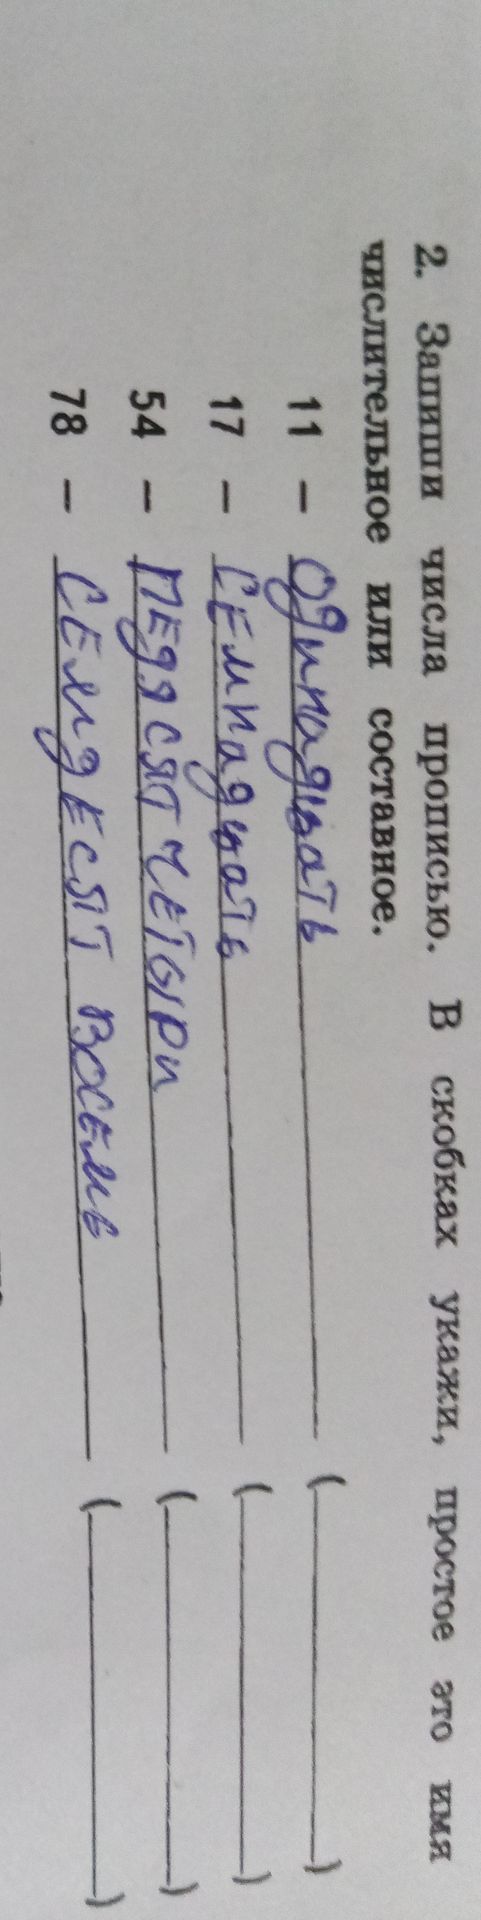 2. Запиши числа прописью. В скобках укажи, простое это имя
числительное или составное.
11 – одинадцать (          )
17 – семнадцать (          )
54 – педясят четыри (          )
78 – семдесят восемь (          )